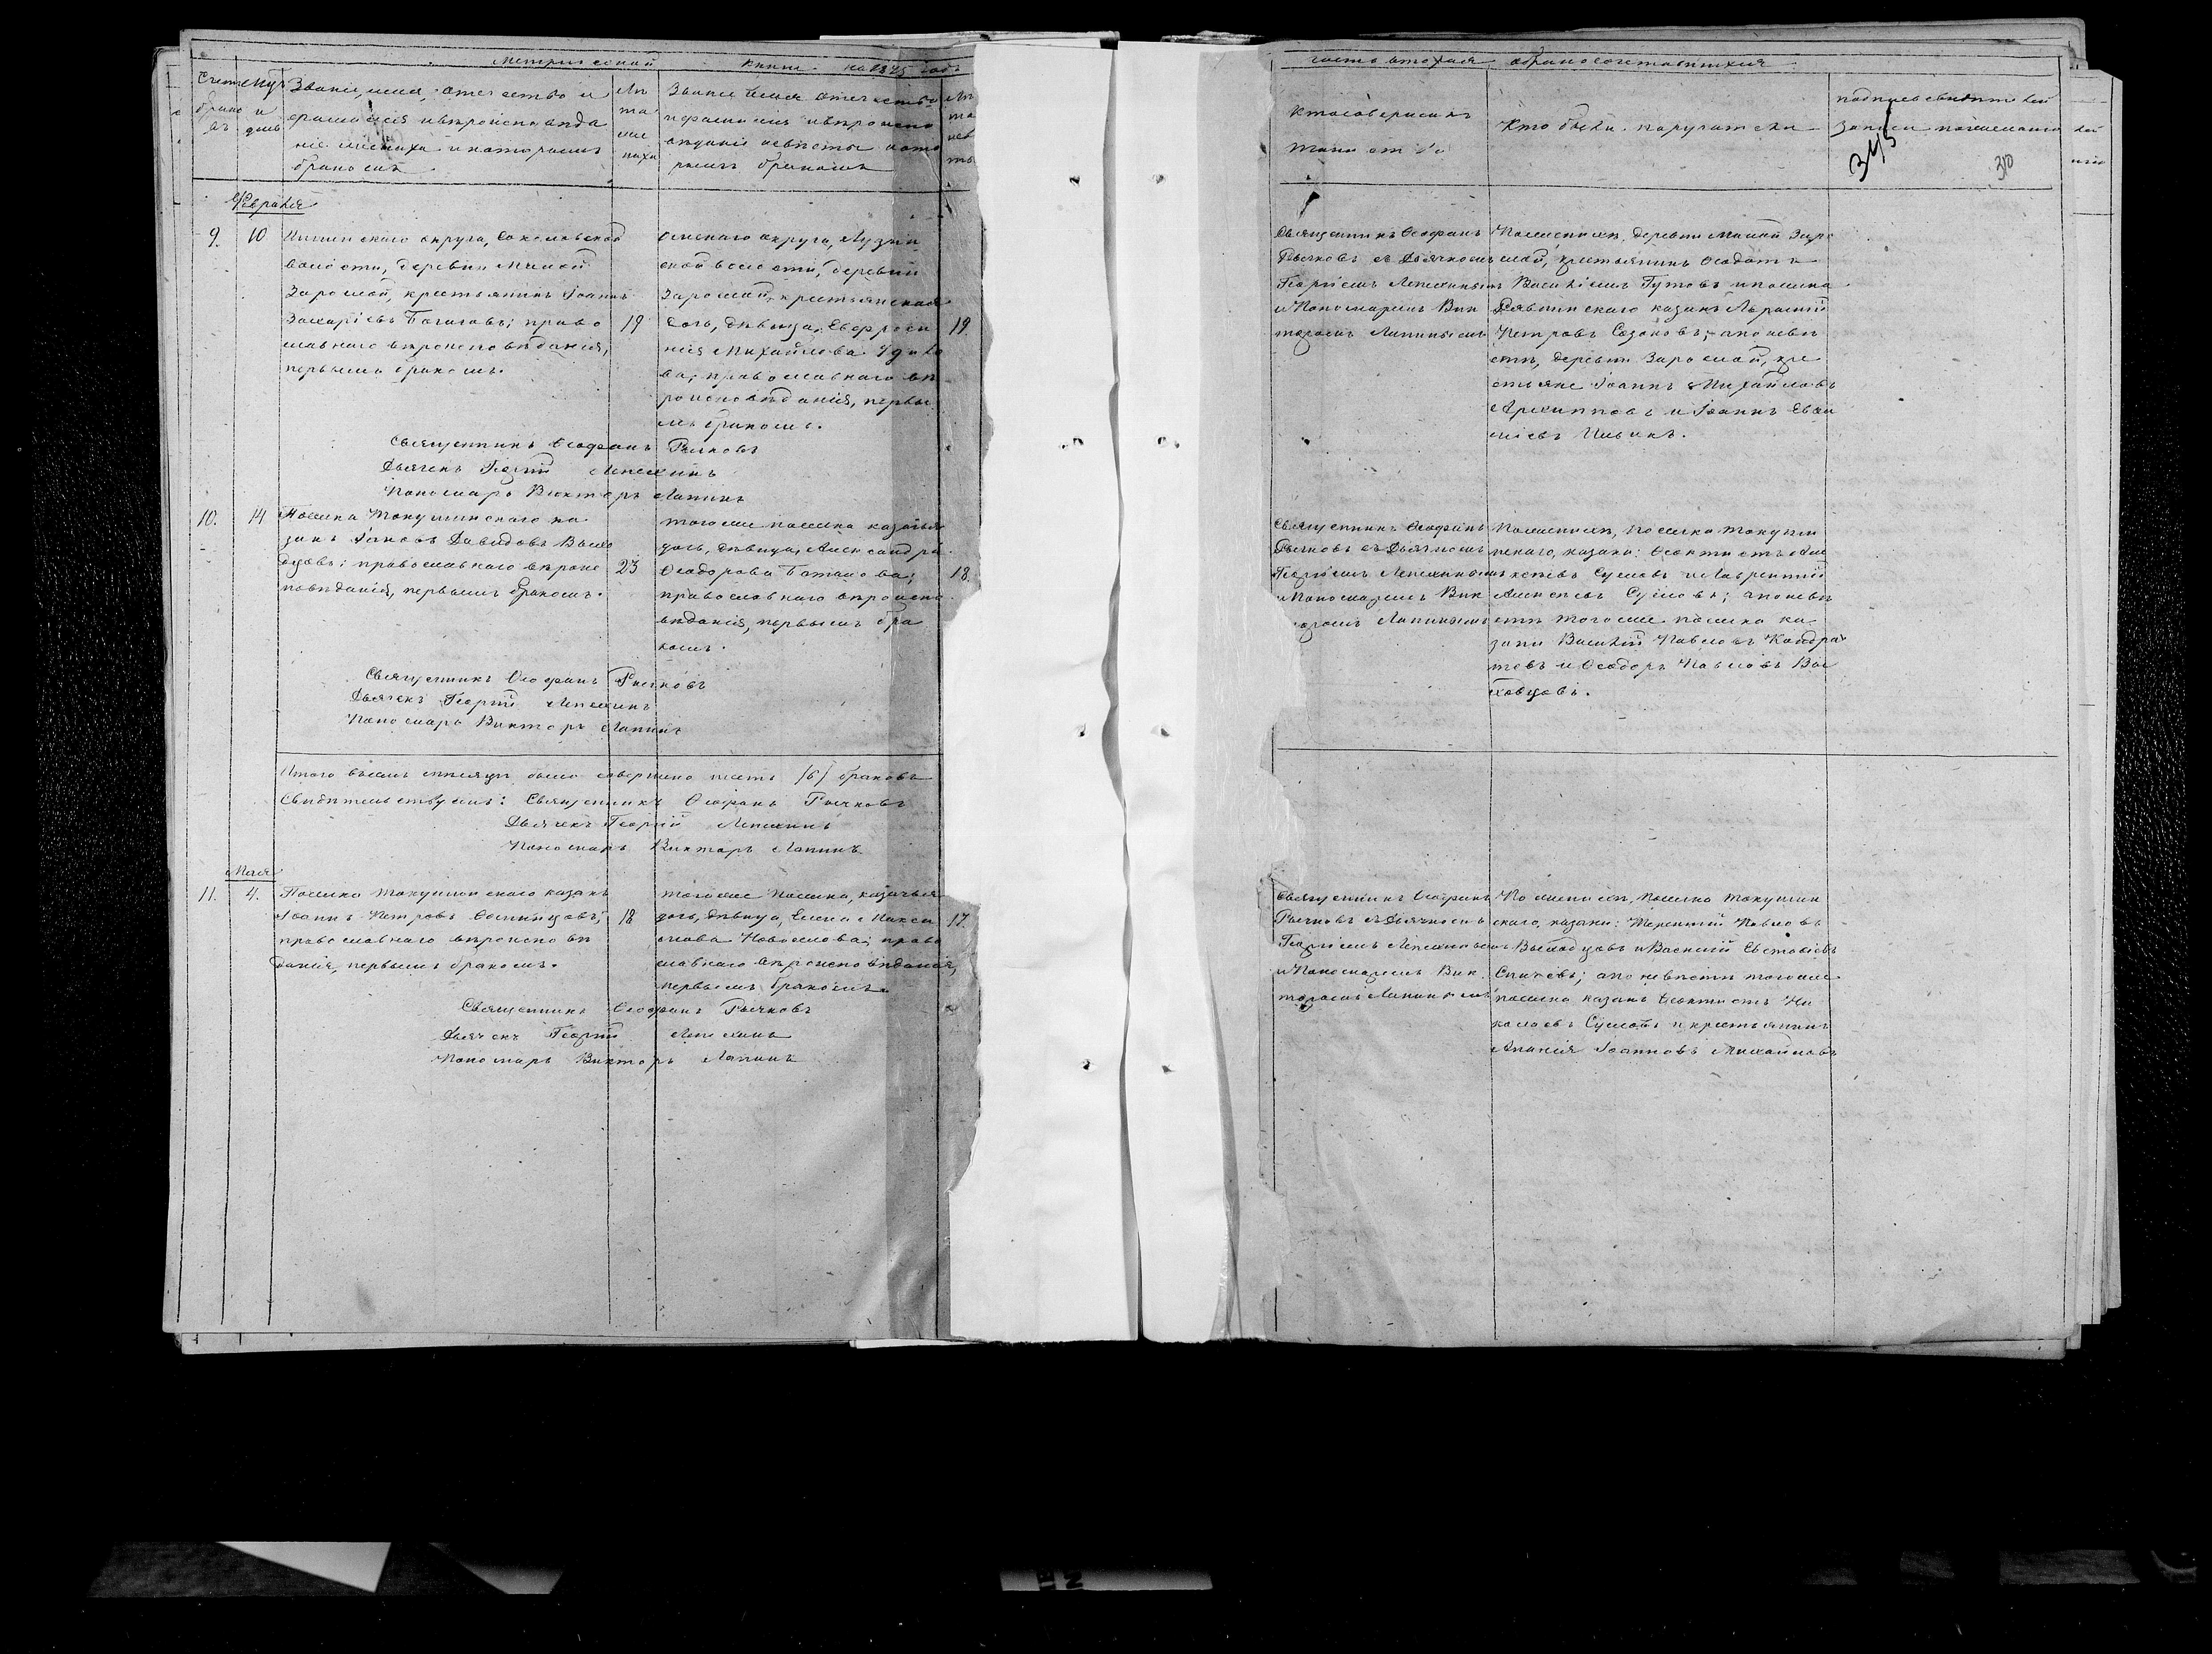 Метрической книги на 1875 годъ
Счетъ браковъ
Мц и день
Званіе, имя, отечество и
фамилія и вѣроисповѣда
ніе жениха и которымъ
бракомъ
Лѣ
та
же
ниха
Званіе имя отечество
и фамилія и вѣроиспо
вѣданіе невѣсты кото
рымъ бракомъ
Лѣ
та
нев
ты
Февраля
9.
10
Ишимскаго округа, Соколовской
волости, деревни Малой
Зарослой, крестьянинъ Іоаннъ
Захаріевъ право
славнаго вѣроисповѣданія,
первымъ бракомъ.
19
Омскаго округа, Лузин
ской волости, деревни
Зарослой, крестьянская
дочь, дѣвица, Евфроси
нія Михайлова
православнаго вѣ
роисповѣданія, первы
мъ бракомъ.
19
Священникъ Ѳеофанъ Рычковъ
Дьячекъ Георгій Лепехинъ
Пономарь Викторъ Лапинъ
10.
14
Поселка Токушинскаго ка
закъ Іаковъ Давидовъ Выхо
дцовъ; православнаго вѣроис
повѣданія, первымъ бракомъ.
23
того же поселка казачья
дочь, дѣвица, Александра
Ѳеодорова Баталова;
православнаго вѣроиспо
вѣданія, первымъ бра
комъ.
18.
Священникъ Ѳеофанъ Рычковъ
Дьячекъ Георгій Лепехинъ
Пономарь Викторъ Лапинъ
Итого въ семъ мѣсяцѣ было совершено шесть /6/ браковъ
Свидѣтельствуемъ: Священникъ Ѳеофанъ Рычковъ
Дьячекъ Георгій Лепехинъ
Пономарь Викторъ Лапинъ
Мая
11.
4.
Поселка Токушинскаго казакъ
Іоаннъ Петровъ Осипцовъ;
православнаго вѣроисповѣ
данія, первымъ бракомъ.
18
того же поселка, казачья
дочь, дѣвица, Елена Макси
мова Новоселова; право
славнаго вѣроисповѣданія,
первымъ бракомъ.
17.
Священникъ Ѳеофанъ Рычковъ
Дьячекъ Георгій Лепехинъ
Пономарь Викторъ Лапинъ
часть вторая о бракосочетавшихся
Кто совершилъ
таинство
Кто были поручители
подпись свидѣтелей
записи по желанію
345
310
Священникъ Ѳеофанъ
Рычковъ съ Дьячкомъ
Георгіемъ Лепехинымъ
и Пономаремъ Вик
торомъ Лапинымъ
По женихѣ, деревни Малой Заро
слой, крестьянинъ Ѳеодотъ
Василіевъ Гутовъ и поселка
казакъ
Петровъ Сазоновъ; а по невѣ
стѣ, деревни Зарослой, кре
стьяне Іоаннъ Михайловъ
Архипповъ и Іоаннъ
Священникъ Ѳеофанъ
Рычковъ съ Дьячкомъ
Георгіемъ Лепехинымъ
и Пономаремъ Вик
торомъ Лапинымъ
По женихѣ, поселка Токуши
нскаго, казаки: Ѳеоктистъ
Сусловъ и Лаврентій
Алексѣевъ Сусловъ; а по невѣ
стѣ того же поселка ка
заки Василій Павловъ Кондра
товъ и Ѳеодоръ Павловъ Вы
ходцовъ.
Священникъ Ѳеофанъ
Рычковъ съ Дьячкомъ
Георгіемъ Лепехинымъ
и Пономаремъ Вик
торомъ Лапинымъ
По женихѣ, поселка Токушин
скаго, казаки: Терентій Павловъ
Выходцовъ и Василій
а по невѣстѣ того же
поселка казакъ Ѳеоктистъ Ни
колаевъ Сусловъ и крестьянинъ
Ананія Іоанновъ Михайловъ